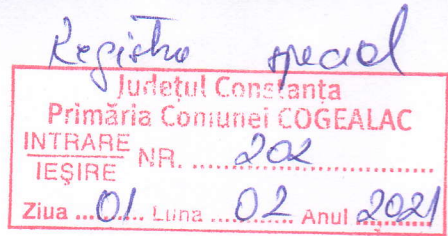 Registru special
Județul Constanța
Primăria Comunei COGEALAC
INTRARE
IEȘIRE NR. ....... 202 .......
Ziua ... 01 ... Luna ... 02 ... Anul ... 2021